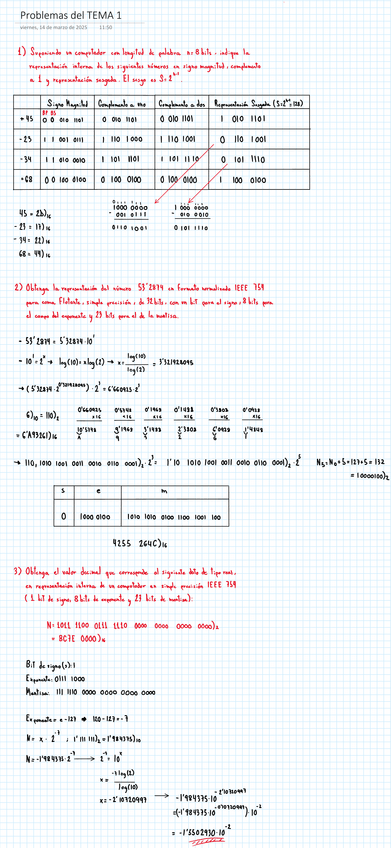 Problemas del TEMA 1
viernes, 14 de marzo de 2025 11:50
1) Suponiendo un computador con longitud de palabra n=8 bits, indique la
representación interna de los siguientes números en signo magnitud, complemento
a 1 y representación sesgada. El sesgo es S=2ⁿ⁻¹
Signo Magnitud Complemento a uno Complemento a dos Representación Sesgada (S=2ⁿ⁻¹=128)
+45 0 0 010 1101 0 010 1101 0 010 1101 1 010 1101
-23 1 1 001 0111 1 110 1000 1 110 1001 0 110 1001
-34 1 1 010 0010 1 101 1101 1 101 1110 0 101 1110
+68 0 0 100 0100 0 100 0100 0 100 0100 1 100 0100
45 = 2D)₁₆
-23 = 17)₁₆
-34 = 22)₁₆
68 = 44)₁₆
1000 0000
- 001 0111
0110 1001
1 000 0000
- 010 0010
0 101 1110
2) Obtenga la representación del número 53'2874 en formato normalizado IEEE 754
para coma flotante, simple precisión, de 32 bits, con un bit para el signo, 8 bits para
el campo del exponente y 23 bits para el de la mantisa.
- 53'2874 = 5'32874·10¹
- 10¹ = 2ˣ → log(10) = x log(2) → x = log(10) / log(2) = 3'321928095
→ (5'32874 · 2^0'321928095) · 2³ = 6'660925·2³
6)₁₀ = 110)₂
= 6'A93261)₁₆
→ 110,1010 1001 0011 0010 0110 0001)₂ · 2³ = 1'10 1010 1001 0011 0010 0110 0001)₂ · 2⁵
= 10000100)₂
s e m
0 1000 0100 1010 1010 0100 1100 1001 100
4255 264C)₁₆
3) Obtenga el valor decimal que corresponde al siguiente dato de tipo real,
en representación interna de un computador en simple precisión IEEE 754
(1 bit de signo, 8 bits de exponente y 23 bits de mantisa):
N= 1011 1100 0111 1110 0000 0000 0000 0000)₂
= BC7E 0000)₁₆
Bit de signo(s): 1
Exponente: 0111 1000
Mantisa: 111 1110 0000 0000 0000 0000
Exponente = e-127 ⇒ 120-127 = -7
N = x · 2⁻⁷ ; 1'111111)₂ = 1'984375)₁₀
N = -1'984375·2⁻⁷ → 2⁻⁷ = 10ˣ
x = -7 log(2) / log(10)
x = -2'10720997 → -1'984375·10^-2'10720997
= (-1'984375·10^-0'10720997)·10⁻²
= -1'5502930·10⁻²